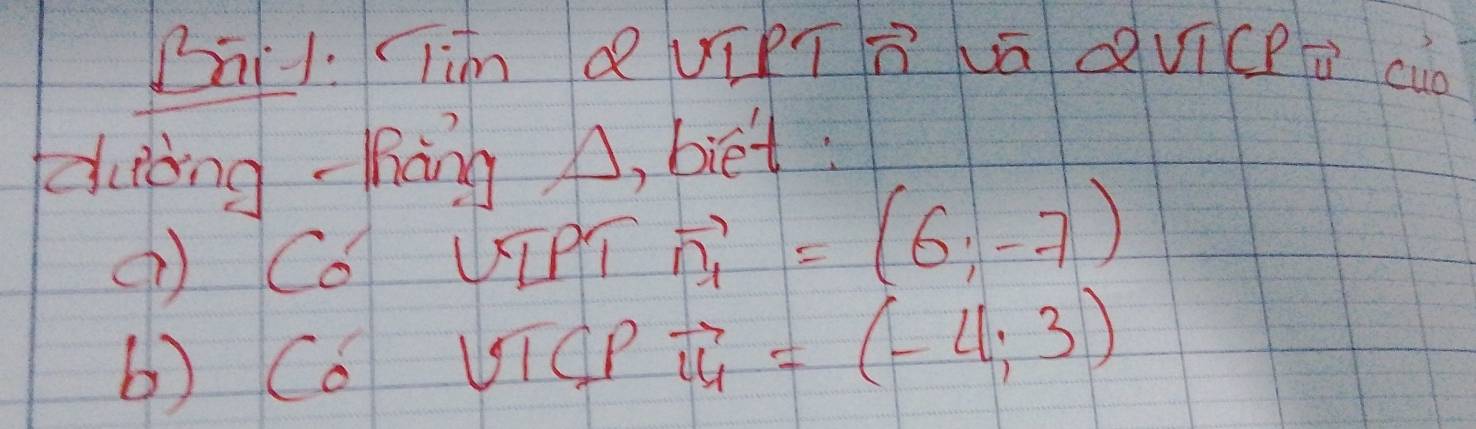 Bài 1: Tìm 2 VTPT n⃗ và 2 VTCP u⃗ của
đường thẳng Δ, biết:
a) Có VTPT n⃗₁ = (6; -7)
b) Có VTCP u⃗₁ = (-4; 3)